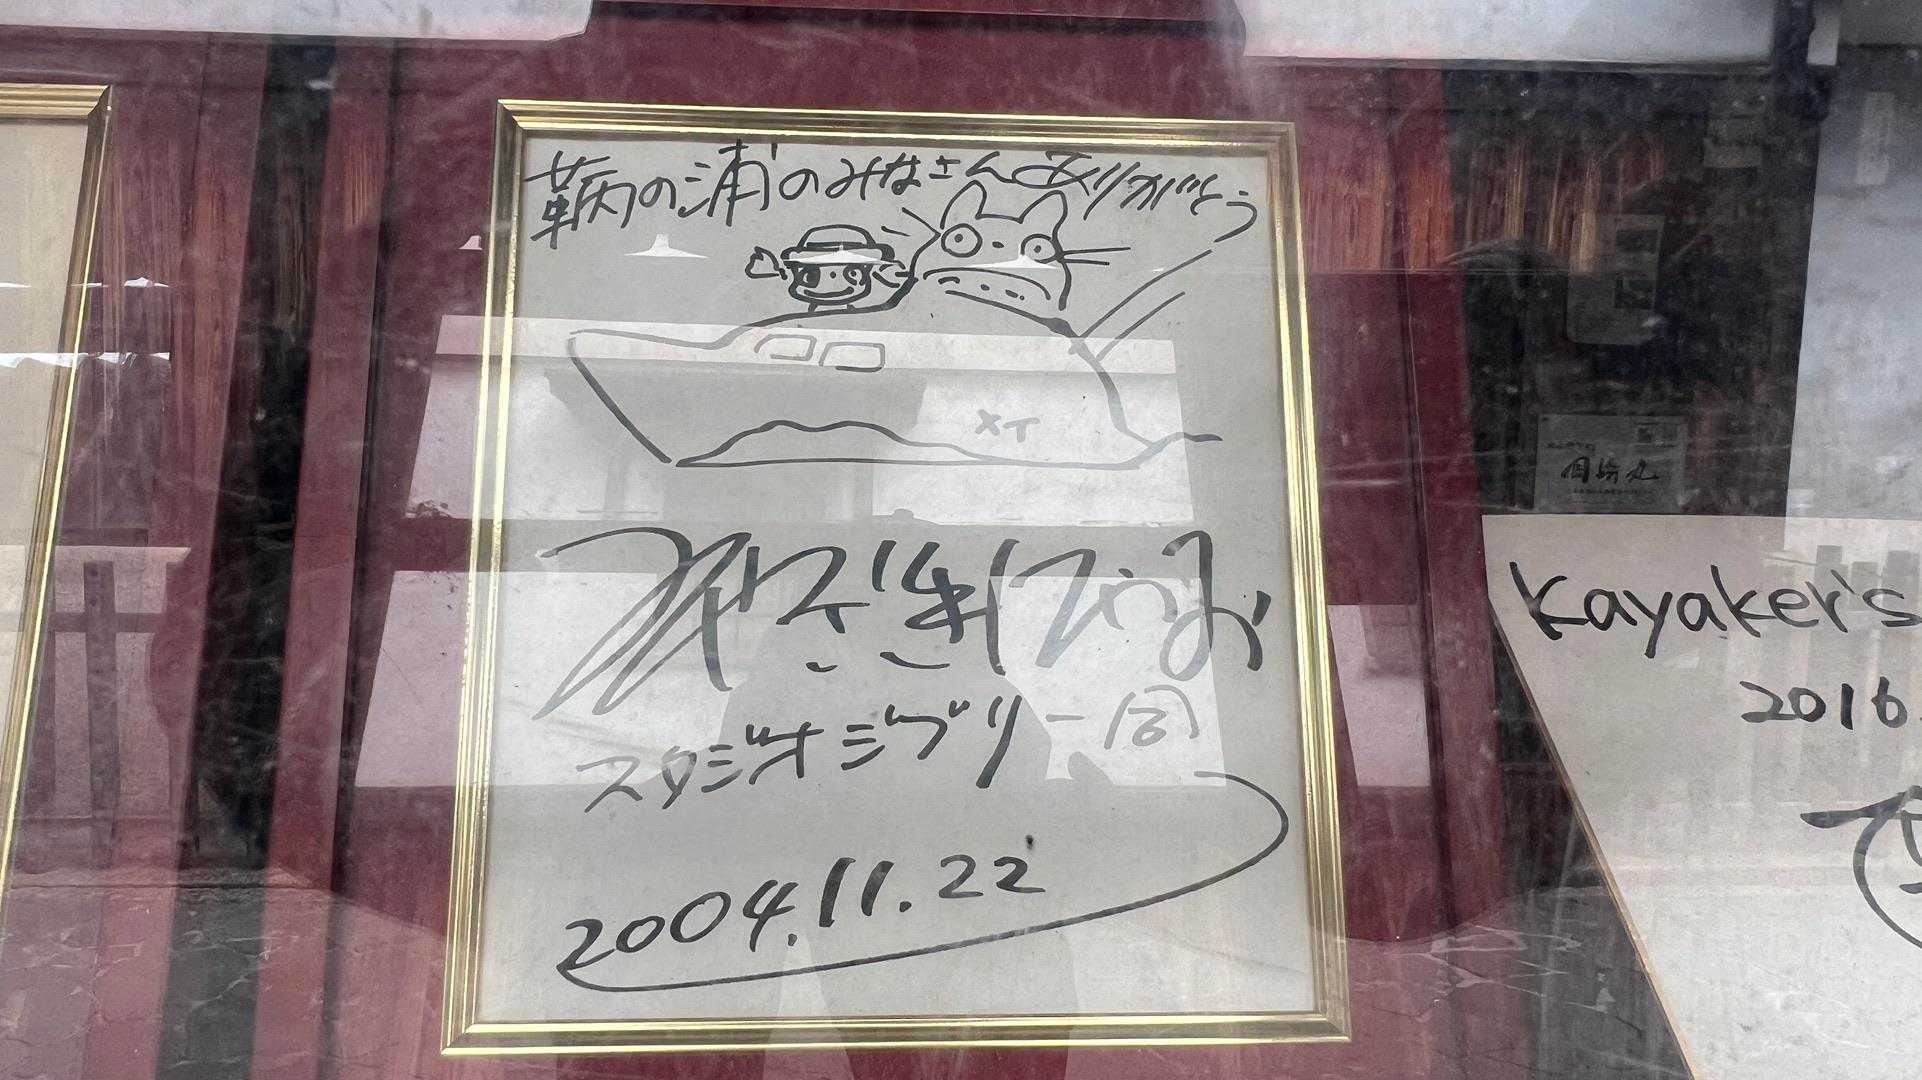 鞆の浦のみなさんありがとう
XT
みやざきはやお
スタジオジブリ一同
2004.11.22
Kayaker's
2016.